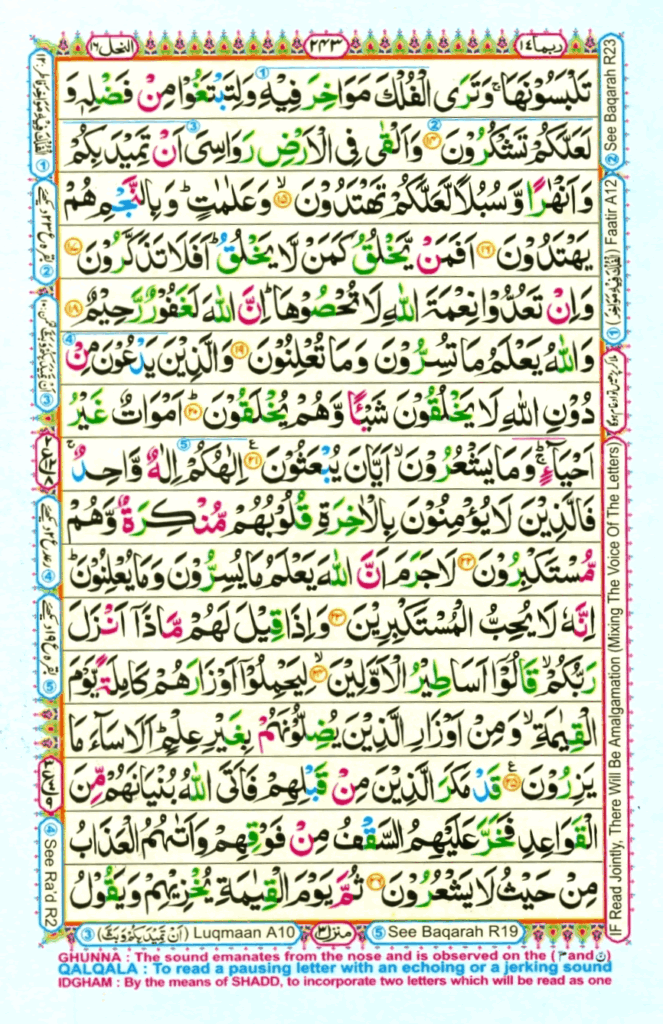 ربما ١٤
٢٤٣
النحل ١٦
تَلۡبَسُوۡنَهَا‌ۚ وَتَرَى الۡفُلۡكَ مَوَاخِرَ فِيۡهِ وَلِتَبۡتَغُوۡا مِنۡ فَضۡلِهٖ وَ
لَعَلَّكُمۡ تَشۡكُرُوۡنَ ﴿۱۴﴾ وَاَلۡقٰى فِى الۡاَرۡضِ رَوَاسِىَ اَنۡ تَمِيۡدَ بِكُمۡ
وَاَنۡهٰرًا وَّسُبُلًا لَّعَلَّكُمۡ تَهۡتَدُوۡنَۙ ﴿۱۵﴾ وَعَلٰمٰتٍ‌ؕ وَبِالنَّجۡمِ هُمۡ
يَهۡتَدُوۡنَ ﴿۱۶﴾ اَفَمَنۡ يَّخۡلُقُ كَمَنۡ لَّا يَخۡلُقُ‌ؕ اَفَلَا تَذَكَّرُوۡنَ ﴿۱۷﴾
وَاِنۡ تَعُدُّوۡا نِعۡمَةَ اللّٰهِ لَا تُحۡصُوۡهَاؕ اِنَّ اللّٰهَ لَغَفُوۡرٌ رَّحِيۡمٌ ﴿۱۸﴾
وَاللّٰهُ يَعۡلَمُ مَا تُسِرُّوۡنَ وَمَا تُعۡلِنُوۡنَ ﴿۱۹﴾ وَالَّذِيۡنَ يَدۡعُوۡنَ مِنۡ
دُوۡنِ اللّٰهِ لَا يَخۡلُقُوۡنَ شَيۡئًا وَّهُمۡ يُخۡلَقُوۡنَؕ ﴿۲۰﴾ اَمۡوَاتٌ غَيۡرُ
اَحۡيَآءٍ‌ۚ وَمَا يَشۡعُرُوۡنَۙ اَيَّانَ يُبۡعَثُوۡنَ ﴿۲۱﴾ اِلٰهُكُمۡ اِلٰهٌ وَّاحِدٌ‌ۚ
فَالَّذِيۡنَ لَا يُؤۡمِنُوۡنَ بِالۡاٰخِرَةِ قُلُوۡبُهُمۡ مُّنۡكِرَةٌ وَّهُمۡ
مُّسۡتَكۡبِرُوۡنَ ﴿۲۲﴾ لَاجَرَمَ اَنَّ اللّٰهَ يَعۡلَمُ مَا يُسِرُّوۡنَ وَمَا يُعۡلِنُوۡنَ‌ؕ
اِنَّهٗ لَا يُحِبُّ الۡمُسۡتَكۡبِرِيۡنَ ﴿۲۳﴾ وَاِذَا قِيۡلَ لَهُمۡ مَّاذَاۤ اَنۡزَلَ
رَبُّكُمۡ‌ۙ قَالُوۡۤا اَسَاطِيۡرُ الۡاَوَّلِيۡنَۙ ﴿۲۴﴾ لِيَحۡمِلُوۡۤا اَوۡزَارَهُمۡ كَامِلَةً يَّوۡمَ
الۡقِيٰمَةِ‌ۙ وَمِنۡ اَوۡزَارِ الَّذِيۡنَ يُضِلُّوۡنَهُمۡ بِغَيۡرِ عِلۡمٍ‌ؕ اَلَا سَآءَ مَا
يَزِرُوۡنَ ﴿۲۵﴾ قَدۡ مَكَرَ الَّذِيۡنَ مِنۡ قَبۡلِهِمۡ فَاَتَى اللّٰهُ بُنۡيَانَهُمۡ مِّنَ
الۡقَوَاعِدِ فَخَرَّ عَلَيۡهِمُ السَّقۡفُ مِنۡ فَوۡقِهِمۡ وَاَتٰٮهُمُ الۡعَذَابُ
مِنۡ حَيۡثُ لَا يَشۡعُرُوۡنَ ﴿۲۶﴾ ثُمَّ يَوۡمَ الۡقِيٰمَةِ يُخۡزِيۡهِمۡ وَيَقُوۡلُ
② See Baqarah R23
① (الۡفُلۡكَ فِيۡهِ مَوَاخِرَ) Faatir A12
IF Read Jointly, There Will Be Amalgamation (Mixing The Voice Of The Letters)
④ See Ra'd R2
③ (اَنۡ تَمِيۡدَ بِكُمۡ وَبَثَّ) Luqmaan A10
منزل ٣
⑤ See Baqarah R19
GHUNNA : The sound emanates from the nose and is observed on the (م and ن)
QALQALA : To read a pausing letter with an echoing or a jerking sound
IDGHAM : By the means of SHADD, to incorporate two letters which will be read as one